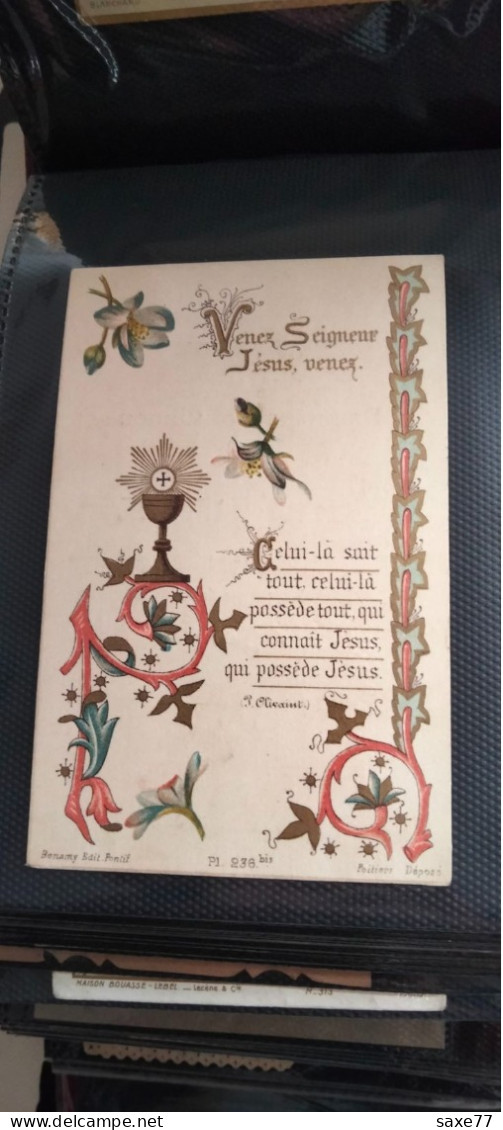 Venez Seigneur
Jésus, venez.
Celui-là sait
tout, celui-là
possède tout, qui
connait Jésus,
qui possède Jésus.
(P. Olivaint.)
Bonamy Edit. Pontif
Pl. 236 bis
Poitiers Déposé
MAISON BOUASSE - LEBEL — Lecène & Cie
saxe77